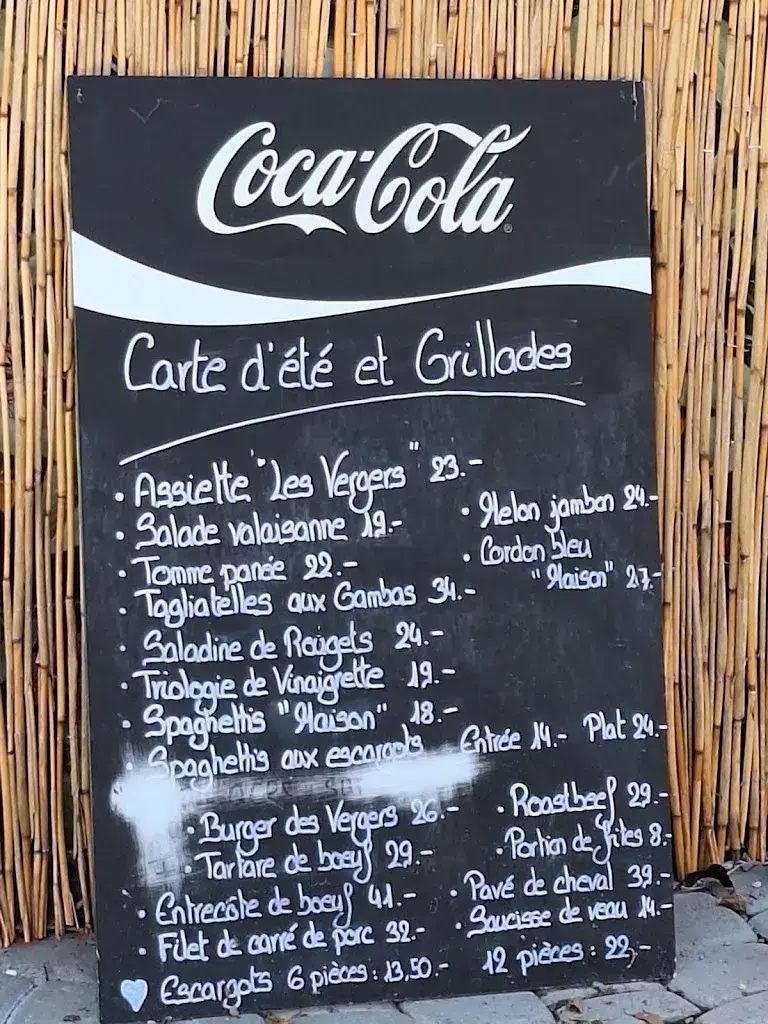 Coca-Cola
Carte d'été et Grillades
• Assiette "Les Vergers" 23.-
• Salade valaisanne 19.-
• Melon jambon 24.-
• Tomme panée 22.-
• Cordon bleu
"Maison" 27.-
• Tagliatelles aux Gambas 34.-
• Saladine de Rougets 24.-
• Triologie de Vinaigrette 19.-
• Spaghettis "Maison" 18.-
• Spaghettis aux escargots Entrée 14.- Plat 24.-
• Burger des Vergers 26.-
• Roastbeef 29.-
• Tartare de boeuf 29.-
• Portion de frites 8.-
• Entrecôte de boeuf 41.-
• Pavé de cheval 39.-
• Filet de carré de porc 32.-
• Saucisse de veau 14.-
Escargots 6 pièces : 13,50.- 12 pièces : 22,-